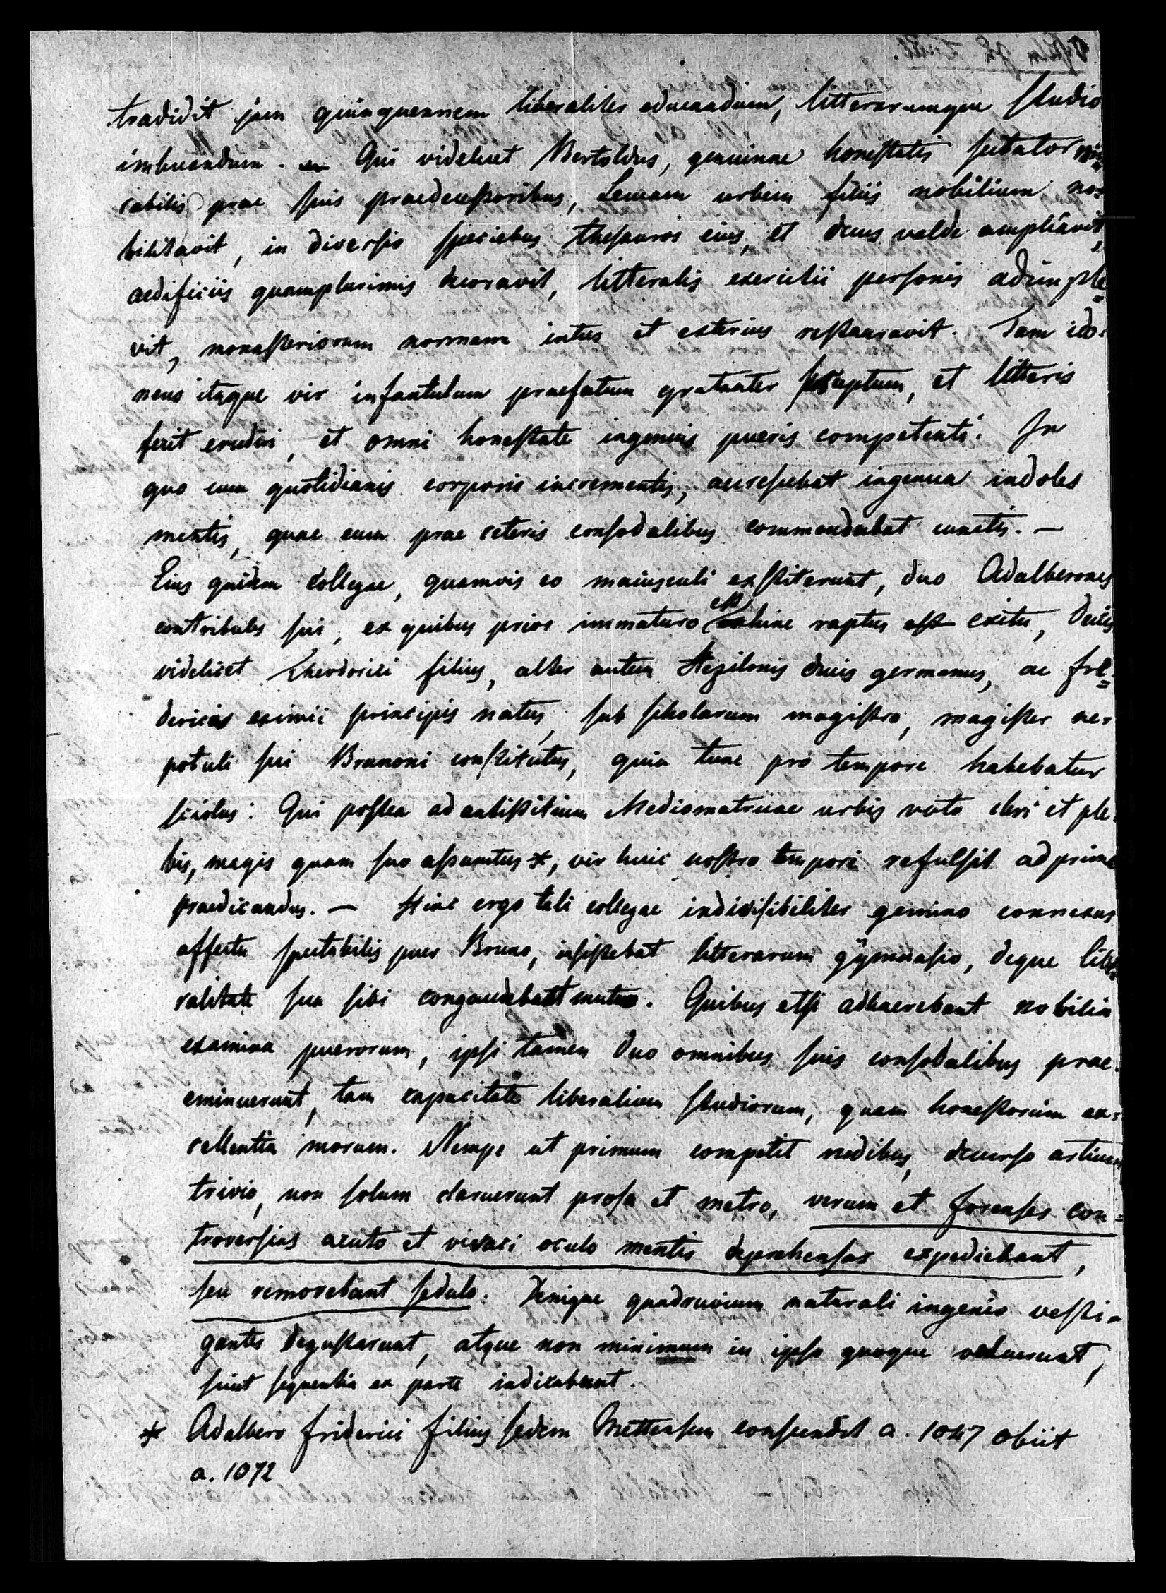 tradidit jam quinquennem liberaliter educandum, litterarumque studio
imbuendum. Qui videlicet Bertoldus, genuinae honestatis sectator mi-
rabilis prae suis praedecessoribus, Leucam urbem filiis nobilium no-
bilitavit, in diversis speciebus thesauros eius, et decus valde ampliavit,
aedificiis quamplurimis decoravit, litteralis exercitii personis adimple-
vit, monasteriorum normam intus et exterius restauravit. Tam ido-
neus itaque vir infantulum praefatum gratanter susceptum, et litteris
fecit erudiri, et omni honestate ingenuis pueris competenti. In
quo cum quotidianis corporis incrementis, accrescebat ingenua indoles
mentis, quae eum prae ceteris consodalibus commendabat cunctis. —
Eius quidem collegae, quamvis eo maiusculi exstiterunt, duo Adalberones
contribules sui, ex quibus prior immaturo est hinc raptus est exitu, ducis
videlicet Theodorici filius, alter autem Hezilonis ducis germanus, ac fri-
dericus eximii principis natus, sub scholarum magistro, magister ne-
potuli sui Brunoni constitutus, quia tunc pro tempore habebatur
sciolus: Qui postea ad antistitium Mediomatricae urbis voto cleri et ple-
bis, magis quam suo assumtus *, vir huic nostro tempori refulsit ad prime
praedicandus. — Hinc ergo tali collegae indivisibiliter gemino connexus
affectu spectabilis puer Bruno, insistebat litterarum gymnasio, deque libe-
ralitate sua sibi congaudebant mutuo. Quibus etsi adhaerebant nobilia
examina puerorum, ipsi tamen duo omnibus suis consodalibus prae-
eminuerunt, tam capacitate liberalium studiorum, quam honestorum ex-
cellentia morum. Nempe ut primum competit rudibus, decurso artium
trivio, non solum claruerunt prosa et metro, verum et forenses con-
troversias acuto et vivaci oculo mentis deprehensas expediebant,
seu removebant sedulo. Denique quadruvium naturali ingenio vesti-
gantes degustarunt, atque non minimum in ipso quoque valuerunt,
sicut sequentia ex parte indicabunt.
* Adalbero friderici filius sedem Mettensem conscendit a. 1047 obiit
a. 1072